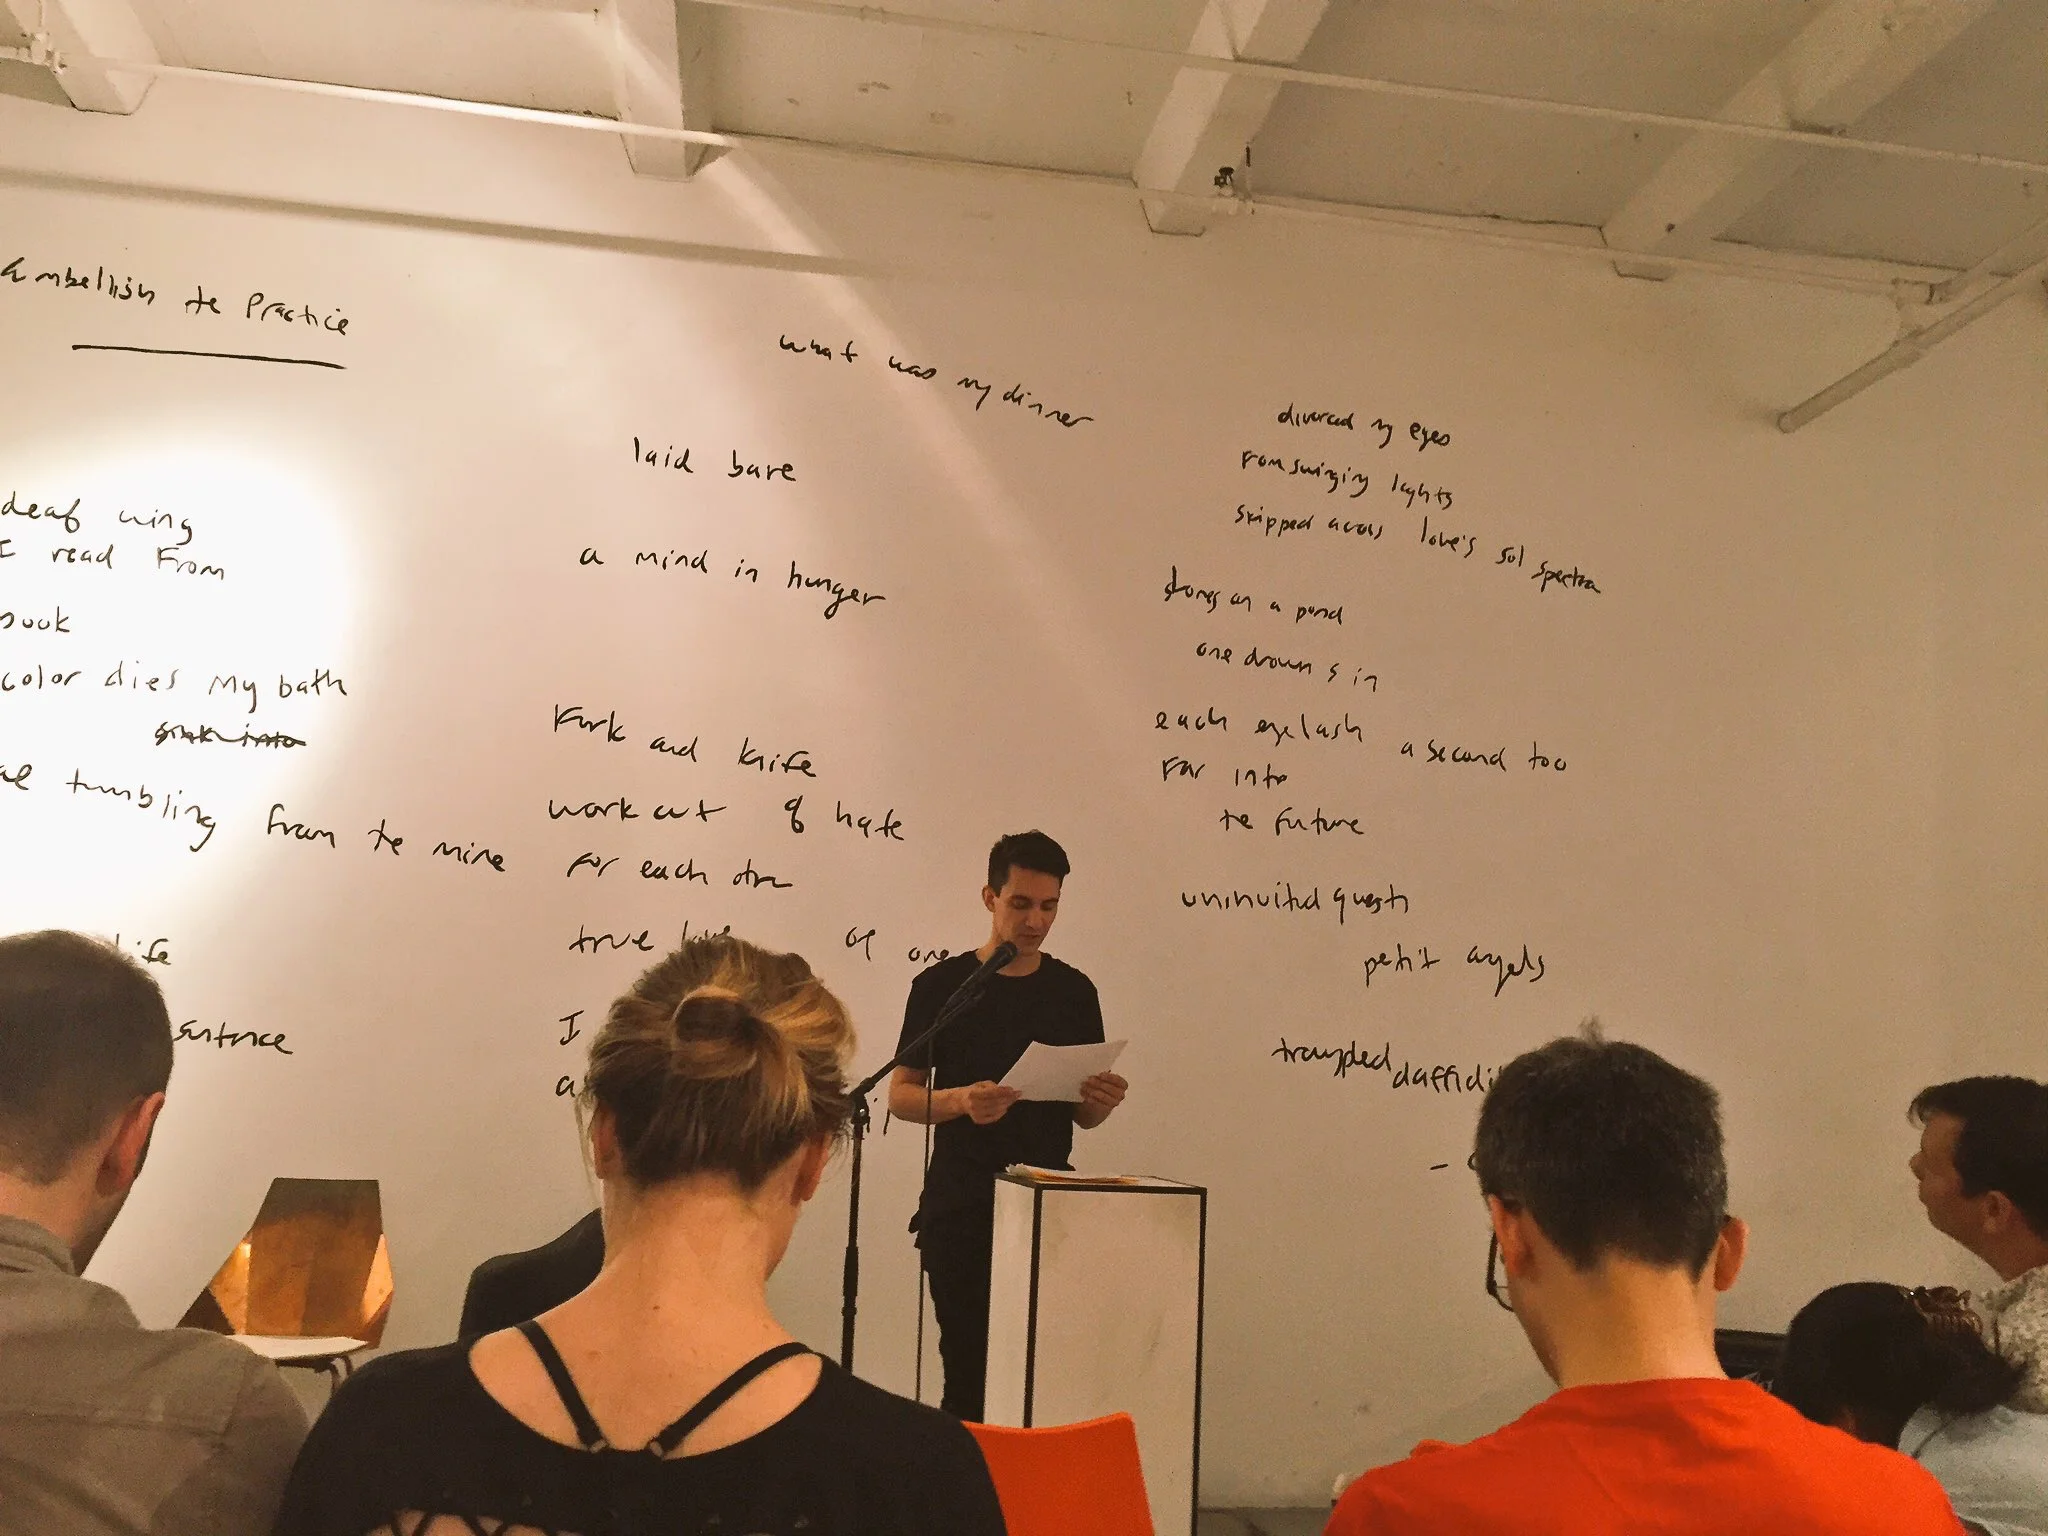 embellish te Practice
deaf wing
I read From
book
color dies my bath
sink into
tumbling from te mine
sentence
what was my dinner
laid bare
a mind in hunger
Fork and knife
work out of hate
for each
true love of one
I
a
my eyes
From swinging lights
skipped across love's sol spectra
stones on a pond
one drowns in
each eyelash a second too
Far into
te Future
uninvited guests
petit angels
trampled